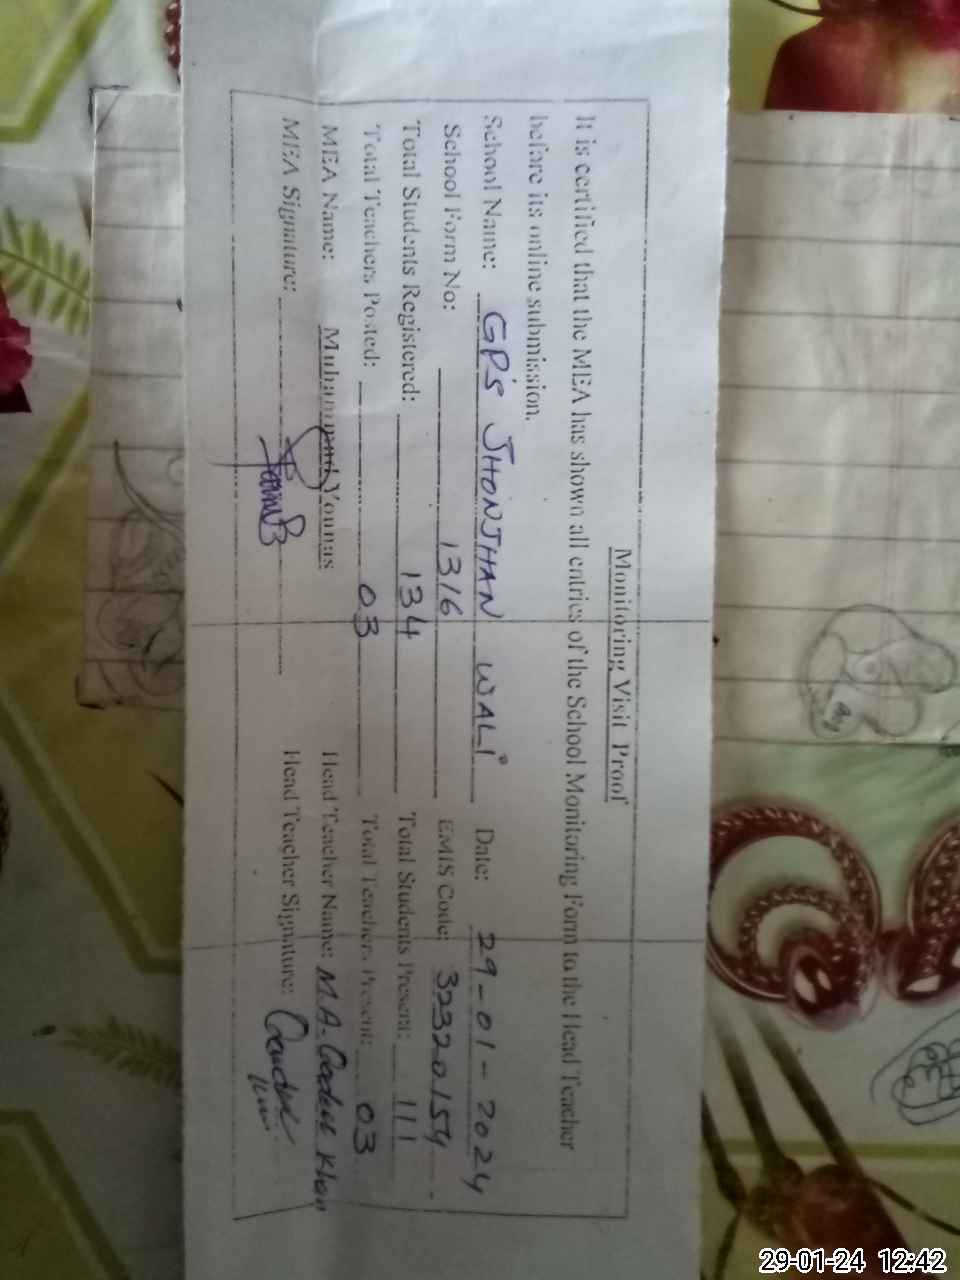 Monitoring Visit Proof
It is certified that the MEA has shown all entries of the School Monitoring Form to the Head Teacher
before its online submission.
School Name: GP'S JHONJHAN WALI Date: 29-01-2024
School Form No: 1316 EMIS Code: 32320154
Total Students Registered: 134 Total Students Present: 111
Total Teachers Posted: 03 Total Teachers Present: 03
MEA Name: Muhammad Younas Head Teacher Name: M.A. Khan
MEA Signature: Head Teacher Signature:
29-01-24 12:42